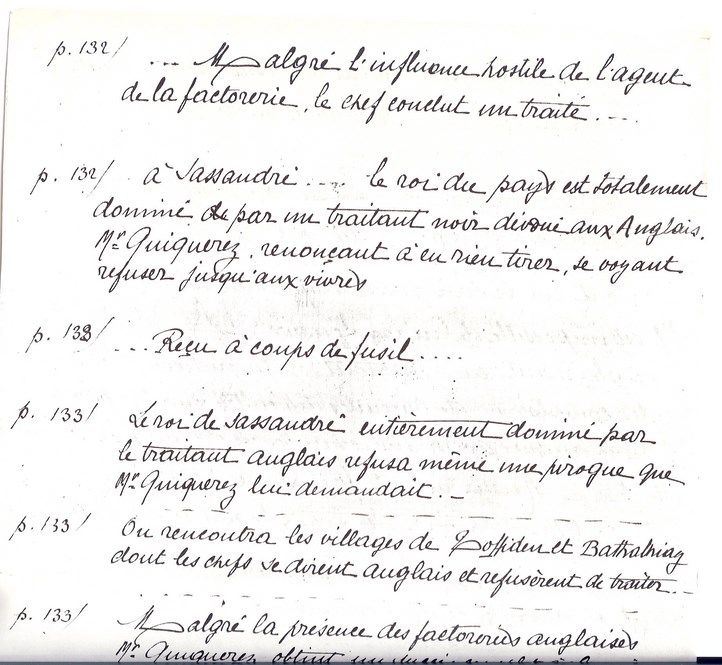 p. 132/ ... Malgré l'influence hostile de l'agent
de la factorerie, le chef conclut un traité. ...
p. 132/ à Sassandré .... le roi du pays est totalement
dominé de par un traitant noir dévoué aux Anglais.
Mr Quiquerez, renonçant à en rien tirer, se voyant
refuser jusqu'aux vivres
p. 133/ ... Reçu à coups de fusil ....
p. 133/ Le roi de Sassandré entièrement dominé par
le traitant anglais refusa même une pirogue que
Mr Quiquerez lui demandait. _
p. 133/ On rencontra les villages de et
dont les chefs se dirent anglais et refusèrent de traiter. _
p. 133/ Malgré la présence des factoreries anglaises
Mr Quiquerez obtint un